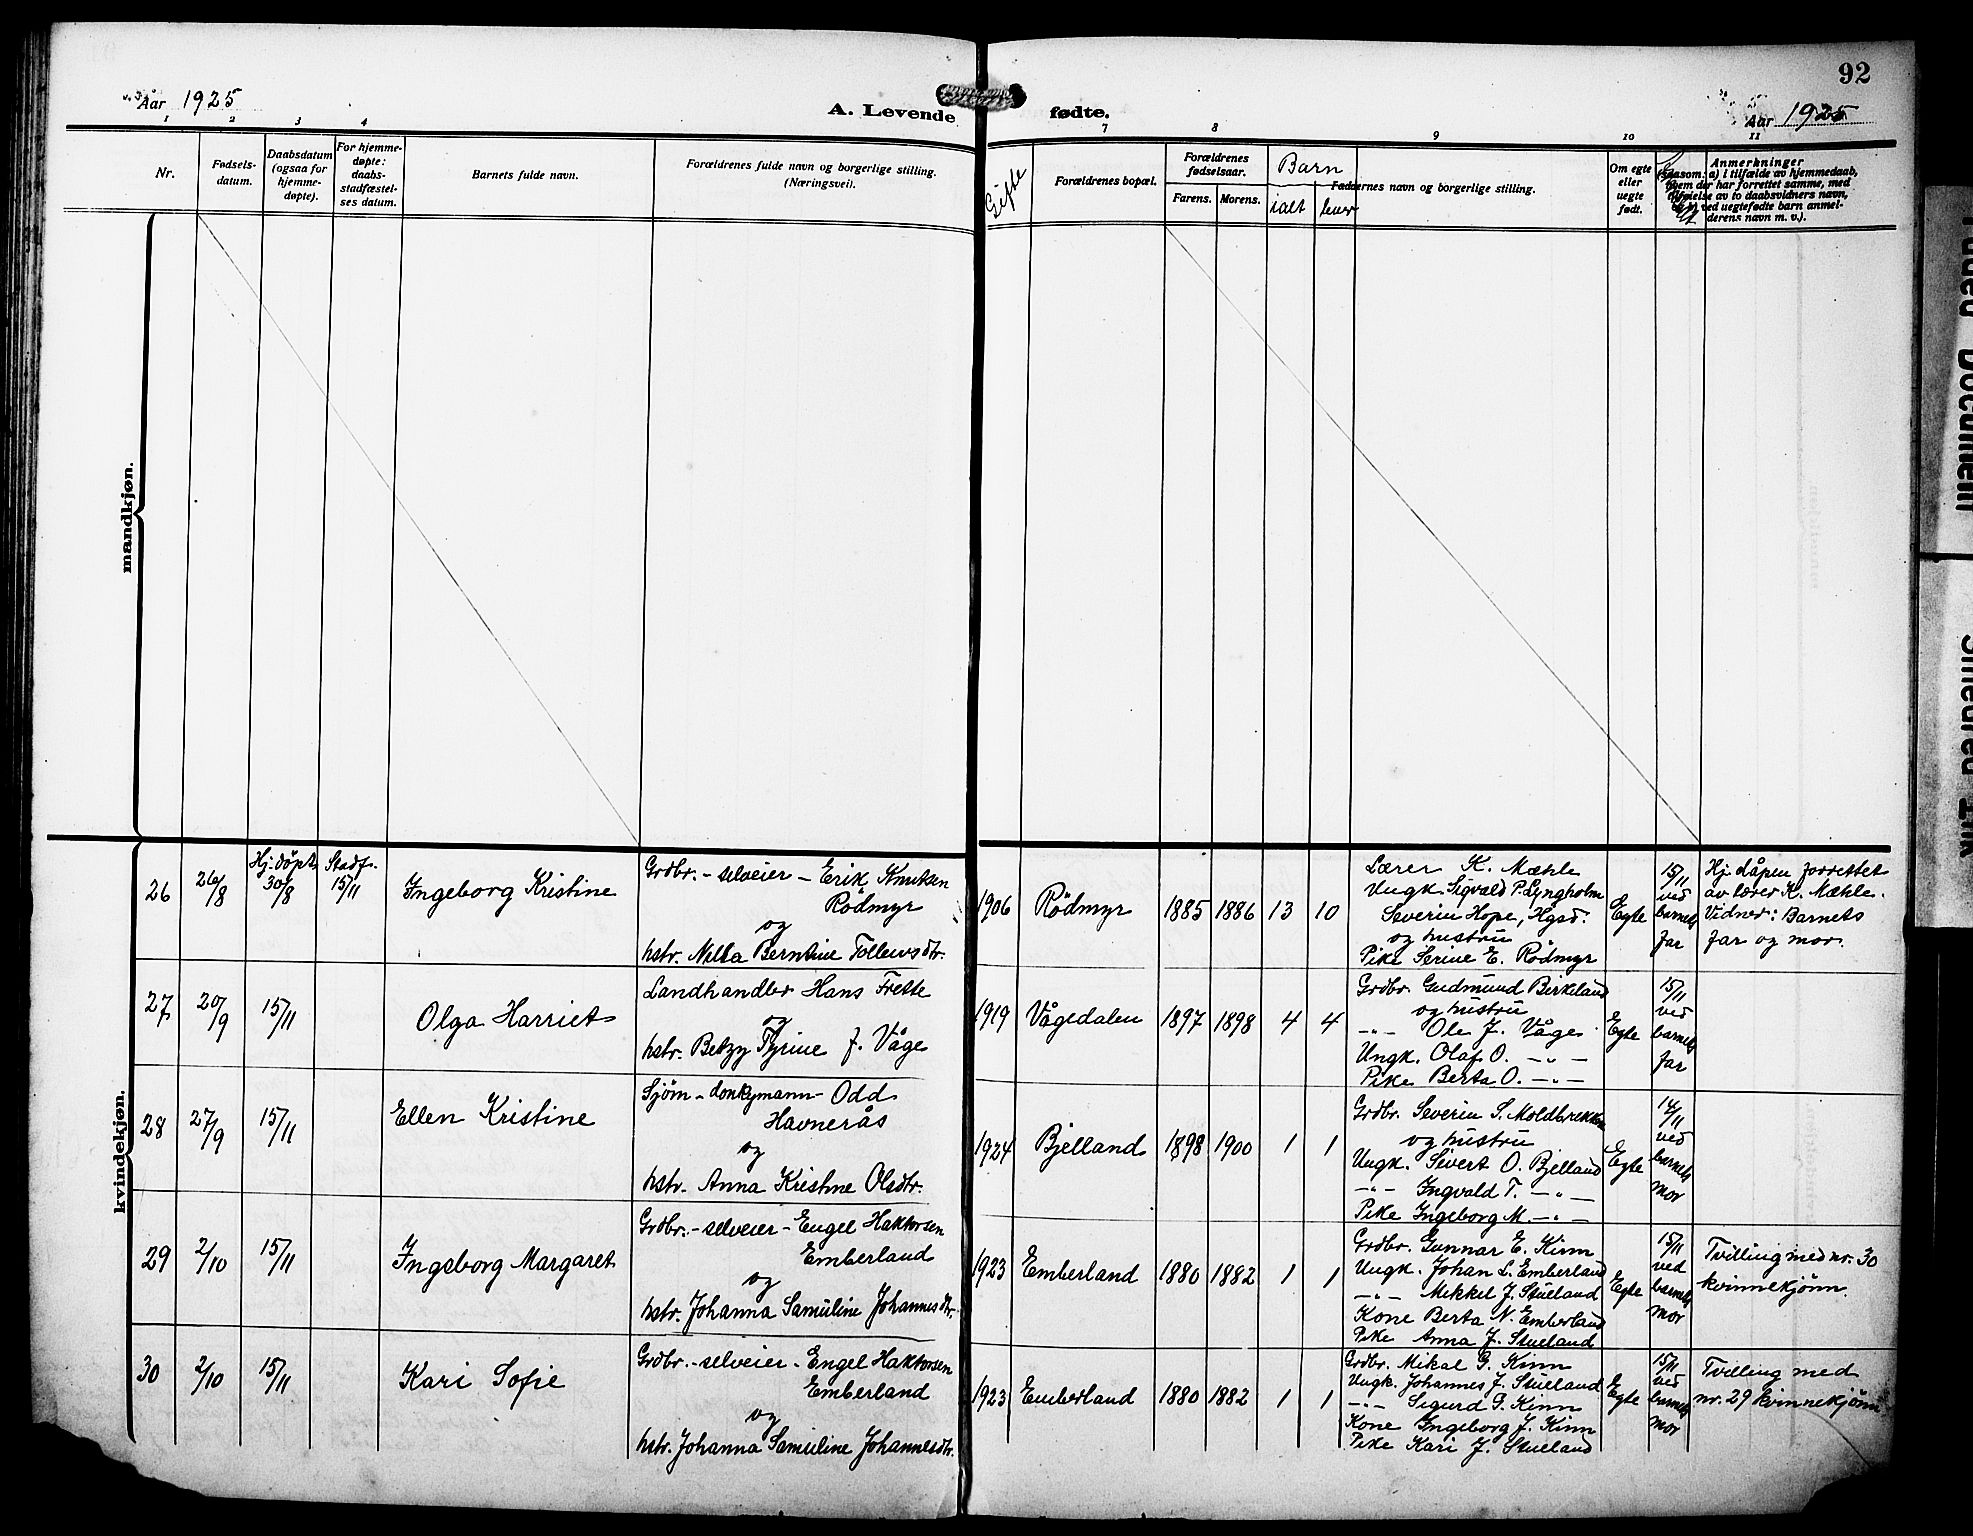 92
Aar 1925
A. Levende fødte.
Aar 1925
1 2 3 4 7 8 9 10 11
Nr.
Fødsels-
datum.
Daabsdatum
(ogsaa for
hjemme-
døpte).
For hjemme-
døpte:
daabs-
stadfæstel-
ses datum.
Barnets fulde navn.
Forældrenes fulde navn og borgerlige stilling.
(Næringsvei).
Gifte
Forældrenes bopæl.
Forældrenes
fødselsaar.
Farens. Morens.
Barn
ialt lever
Faddernes navn og borgerlige stilling.
Om egte
eller
uegte
født.
Anmerkninger
saasom: a) I tilfælde av hjemmedaab,
hvem der har forrettet samme, med
tilføielse av to daabsvidners navn,
b) ved uegtefødte barn anmel-
derens navn m. v.).
mandkjøn.
kvindekjøn.
26
26/8
Hj. døpt
30/8
Stadf.
15/11
Ingeborg Kristine
Grdbr. - selveier - Erik Knutsen
Rödmyr
og
hstr. Nilla Berntine Tollevsdtr.
1906
Rödmyr
1885 1886 13 10
Lærer K. Mæhle
Ungk. Sigvald P. Lyngholm
Severin Hope, Hgsd.
og hustru
Pike Serine E. Rödmyr
Egte
15/11
ved
barnets
far
Hj. dåpen forrettet
av lærer K. Mæhle.
Vidner: Barnets
far og mor.
27
20/9
15/11
Olga Harriet
Landhandler Hans Frette
og
hstr. Betzy Tyrine f. Våge
1919
Vågedalen
1897 1898 4 4
Grdbr. Gudmund Birkeland
og hustru
-"- Ole J. Våge
Ungk. Olaf O. -"-
Pike Berta O. -"-
Egte
15/11
ved
barnets
far
28
27/9
15/11
Ellen Kristine
Sjøm - donkymann - Odd
Havnerås
og
hstr. Anna Kristine Olsdtr.
1924
Bjelland
1898 1900 1 1
Grdbr. Severin S. Moldbrekken
og hustru
Ungk. Sivert O. Bjelland
-"- Ingvald T. -"-
Pike Ingeborg M. -"-
Egte
14/11
ved
barnets
mor
29
2/10
15/11
Ingeborg Margaret
Grdbr. - selveier - Engel Haktorsen
Emberland
og
hstr. Johanna Samuline Johannesdtr.
1923
Emberland
1880 1882 1 1
Grdbr. Gunnar E. Kinn
Ungk. Johan L. Emberland
-"- Mikkel J. Stueland
Kone Berta N. Emberland
Pike Anna J. Stueland
Egte
15/11
ved
barnets
mor
Tvilling med nr. 30
kvinnekjönn.
30
2/10
15/11
Kari Sofie
Grdbr. - selveier - Engel Haktorsen
Emberland
og
hstr. Johanna Samuline Johannesdtr.
1923
Emberland
1880 1882 1 1
Grdbr. Mikal G. Kinn
Ungk. Johannes J. Stueland
-"- Sigurd G. Kinn
Kone Ingeborg J. Kinn
Pike Kari J. Stueland
Egte
15/11
ved
barnets
mor
Tvilling med
nr. 29 kvinnekjönn.